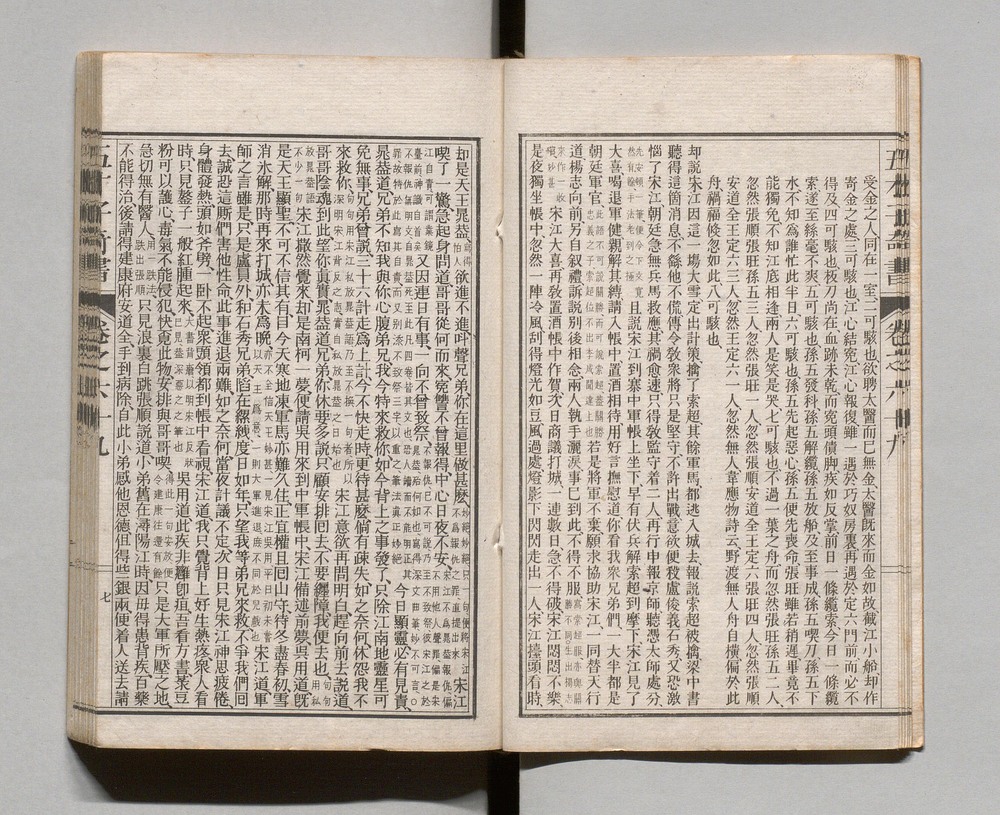 受金之人同在一室二可駭也欲聘太醫而已無金太醫既來而金如故截江小船却作
寄金之處三可駭也江心結寃江心報復雖一遇於巧奴房裏再遇於定六門前而必不
得及四可駭也板刀尚在血跡未乾而寃頭債脚疾如反掌前日一條纜索今日一條纜
索遂至絲毫不爽五可駭也孫五發科孫五解纜孫五放船及至事成孫五喫刀孫五下
水不知爲誰忙此半日六可駭也孫五先起惡心孫五便先喪命張旺雖若稍遲畢竟不
能獨免不知江底相逢兩人是笑是哭七可駭也不過一葉之舟而忽然張旺孫五二人
忽然張順張旺孫五三人忽然張旺一人忽然張順安道全王定六張旺四人忽然張順
安道全王定六三人忽然王定六一人忽然無人韋應物詩云野渡無人舟自橫偏於此
舟禍福倏忽如此八可駭也
却說宋江因這一場大雪定出計策擒了索超其餘軍馬都逃入城去報說索超被擒梁中書
聽得這箇消息不繇他不慌傳令敎衆將只是堅守不許出戰意欲便殺盧俊義石秀又恐激
惱了宋江朝廷急無兵馬救應其禍愈速只得敎監守着二人再行申報京師聽憑太師處分
先安頓一筆便令下文寬然有餘手法老到之極 且說宋江到寨中軍帳上坐下早有伏兵解索超到麾下宋江見了
大喜喝退軍健親解其縛請入帳中置酒相待用好言撫慰道你看我衆兄弟們一大半都是
朝廷軍官 此語不可說關勝而可說索超蓋關勝忠義之子索超位不出李成聞達上也 若是將軍不棄願求協助宋江一同替天行
道楊志向前另自叙禮訴說別後相念兩人執手灑淚事已到此不得不服 寫索超服亦與關勝不同生出楊志
來作一收 妙甚 宋江大喜再敎置酒帳中作賀次日商議打城一連數日急不得破宋江悶悶不樂
是夜獨坐帳中忽然一陣冷風刮得燈光如豆風過處燈影下閃閃走出一人宋江擡頭看時
却是天王晁蓋 寫得怕人 欲進不進叫聲兄弟你在這里做甚麽 妙絕妙絕只一句便將宋江不爲報仇之罪直提出來 宋江
喫了一驚急起身問道哥哥從何而來寃讐不曾報得中心日夜不安
又因連日有事一向不曾致祭 今日顯靈必有見責
晁蓋道兄弟不知我與你心腹弟兄我今特來救你如今背上之事發了只除江南地靈星可
免無事兄弟曾說三十六計走爲上計今不快走時更待甚麽倘有疎失如之奈何休怨我不
來救你 宋江意欲再問明白趕向前去說道
哥哥陰魂到此望你眞實晁蓋道兄弟你休要多說只顧安排回去不要纏障我便去也
宋江撒然覺來却是南柯一夢便請吳用來到中軍帳中宋江備述前夢吳用道旣
是天王顯聖不可不信其有目今天寒地凍軍馬亦難久住正宜權且回山守待冬盡春初雪
消氷解那時再來打城亦未爲晚 宋江道軍
師之言雖是只是盧員外和石秀兄弟陷在縲絏度日如年只望我等弟兄來救不爭我們回
去誠恐這廝們害他性命此事進退兩難如之奈何當夜計議不定次日只見宋江神思疲倦
身體發熱頭如斧劈一卧不起衆頭領都到帳中看視宋江道我只覺背上好生熱疼衆人看
時只見鏊子一般紅腫起來 吳用道此疾非癰卽疽吾看方書菉豆
粉可以護心毒氣不能侵犯快覓此物安排與哥哥喫 只是大軍所壓之地
急切無有醫人 只見浪裏白跳張順說道小弟舊在潯陽江時因母得患背疾百藥
不能得治後請得建康府安道全手到病除自此小弟感他恩德但得些銀兩便着人送去請
卷之六十九
七